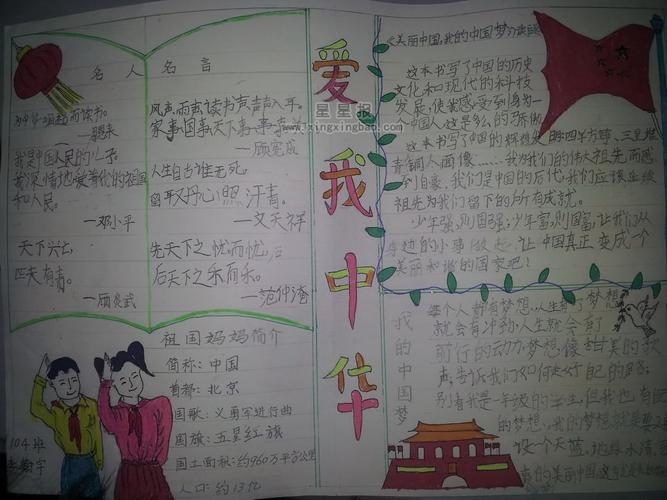 名人名言
为中华崛起而读书。
—周恩来
我是中国人民的儿子。
我深情地爱着我的祖国
和人民。
—邓小平
天下兴亡
匹夫有责。
—顾炎武
风声雨声读书声声声入耳。
家事国事天下事事事关心
—顾宪成
人生自古谁无死,
留取丹心照汗青。
—文天祥
先天下之忧而忧,
后天下之乐而乐。
—范仲淹
祖国妈妈简介
简称:中国
首都:北京
国歌:义勇军进行曲
国旗:五星红旗
国土面积:约960万平方公里
人口:约13亿
104班
爱我中华
星星报
www.ixingxingbao.com
《美丽中国,我的中国梦》读后感
这本书写了中国的历史
文化和现代的科技
发展,使我感受到身为一
个中国人这是多么的骄傲
这本书写了中国的辉煌发
青铜人面像……我为我们的伟大祖先而感
到自豪,我们是中国的后代,我们应该延续
祖先为我们留下的所有成就。
少年强,则国强;少年富,则国富,让我们从
身边的小事做起,让中国真正变成一个
美丽和谐的国家吧!
我的中国梦
每个人都有梦想,人生有了梦想
就会有冲劲,人生就会有
前行的动力,梦想像甜美的歌
声,告诉我们如何走好自己的路;
别看我是一年级的学生,但我也有自
的梦想,我的梦想就是
设一个天蓝,地绿,水清
的美丽中国